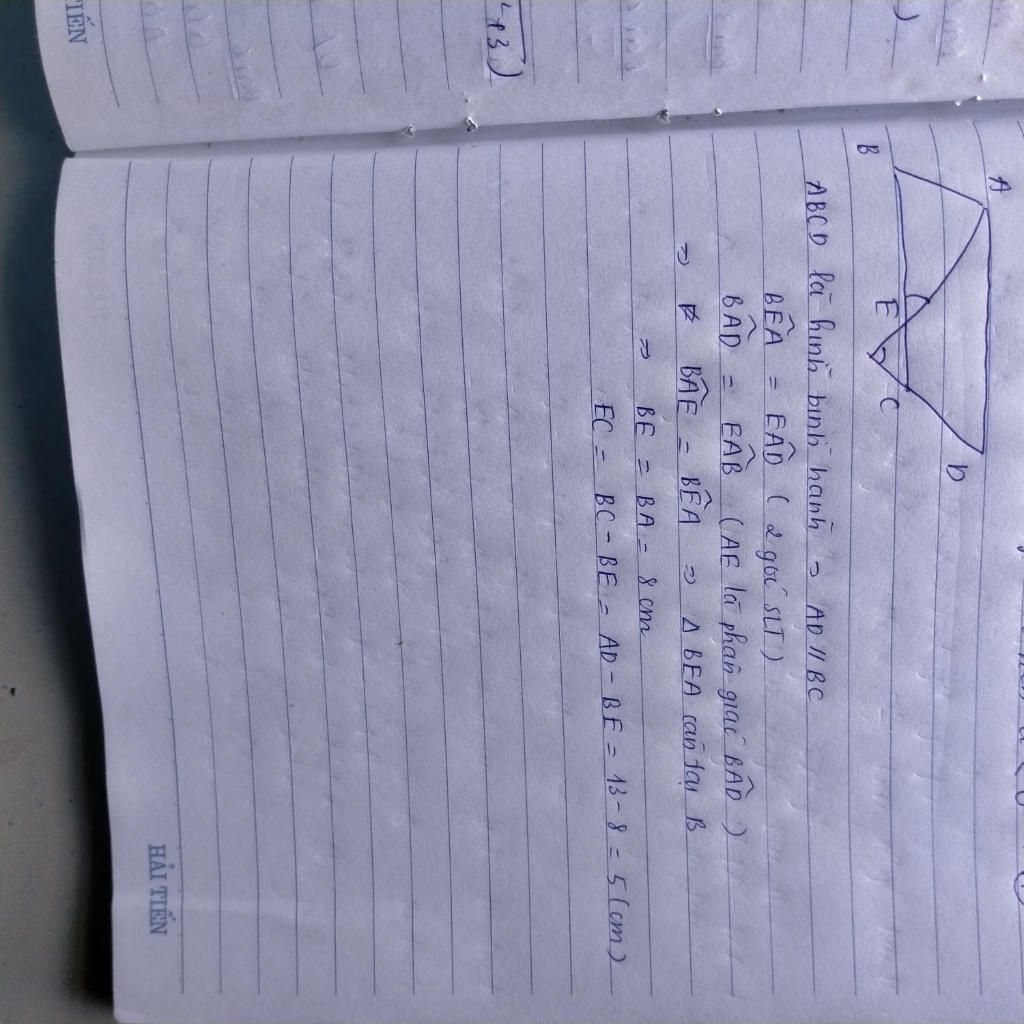 A
B
E
C
D
ABCD là hình bình hành => AD // BC
BÊA = EÂD ( 2 góc SLT )
BÂD = EÂB ( AE là phân giác BÂD )
=> BÂE = BÊA => Δ BEA cân tại B
=> BE = BA = 8 cm
EC = BC - BE = AD - BE = 13 - 8 = 5 (cm)
HẢI TIẾN
TIẾN